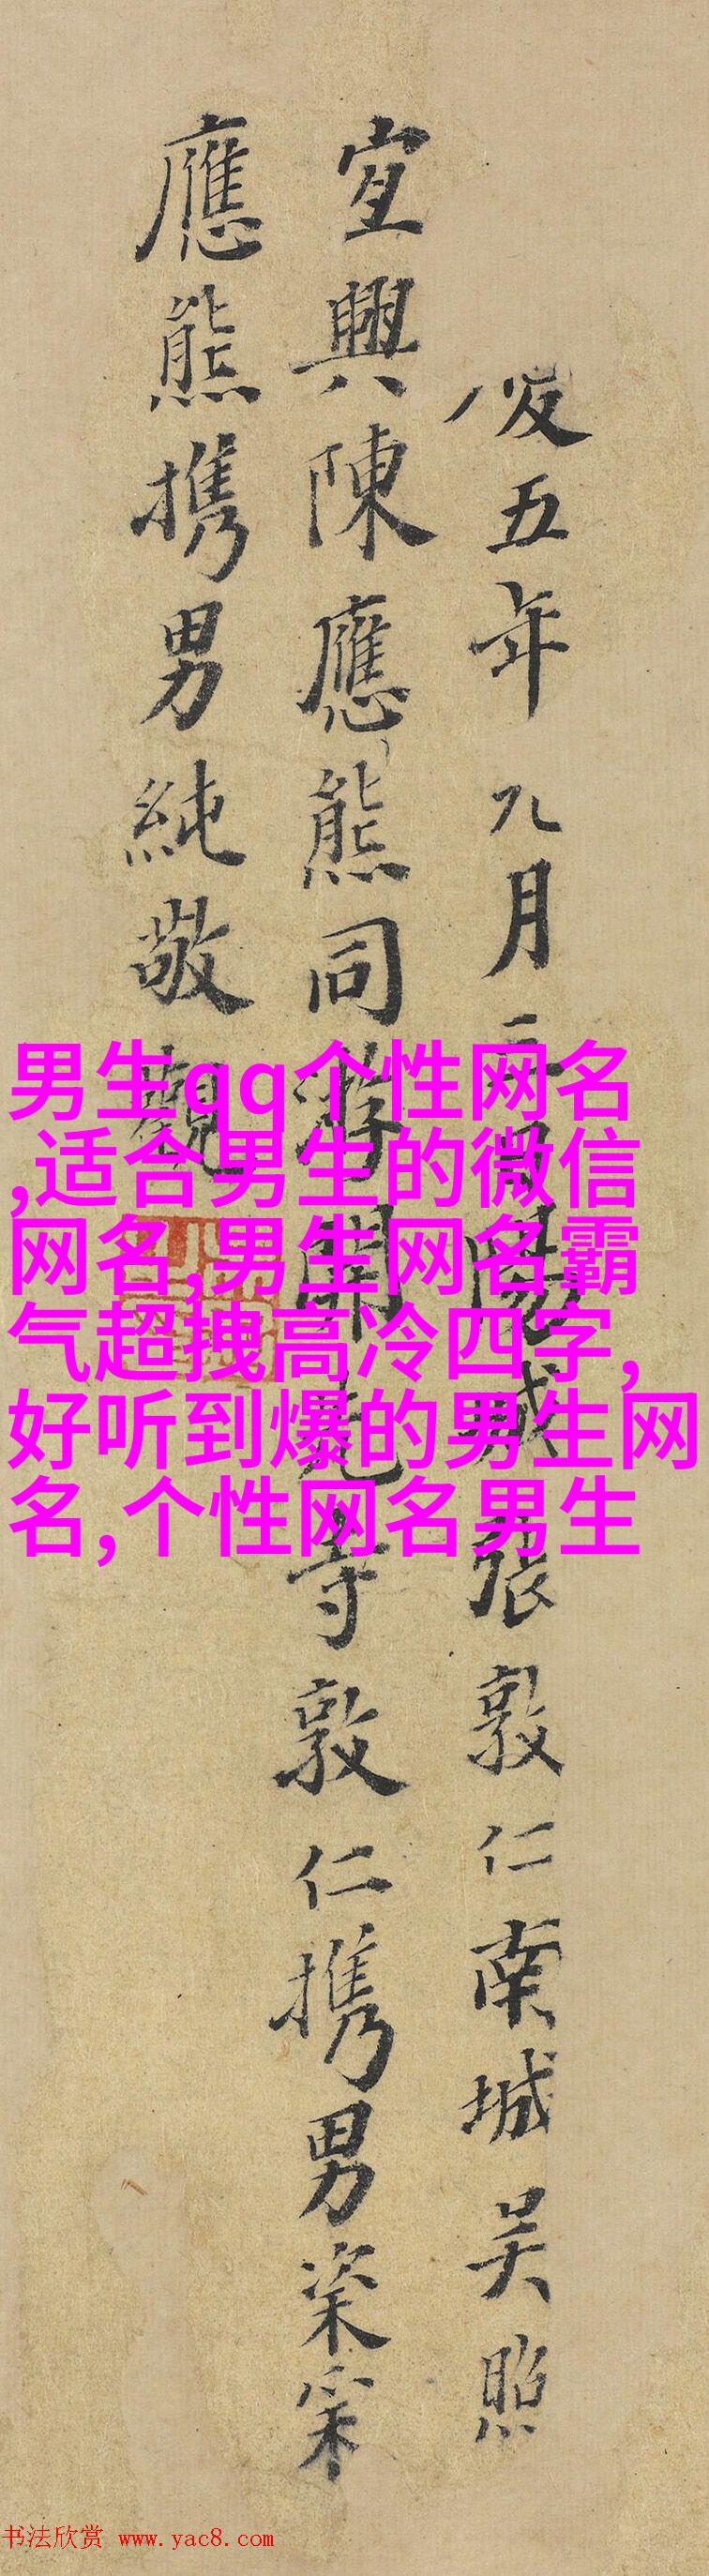 五年九月二日陽城張敦仁南城吴照
宜興陳應熊同游開先寺敦仁攜男
應熊攜男純敬觀
男生qq个性网名
,适合男生的微信
网名,男生网名霸
气超拽高冷四字,
好听到爆的男生网
名,个性网名男生
书法欣赏 www.yac8.com